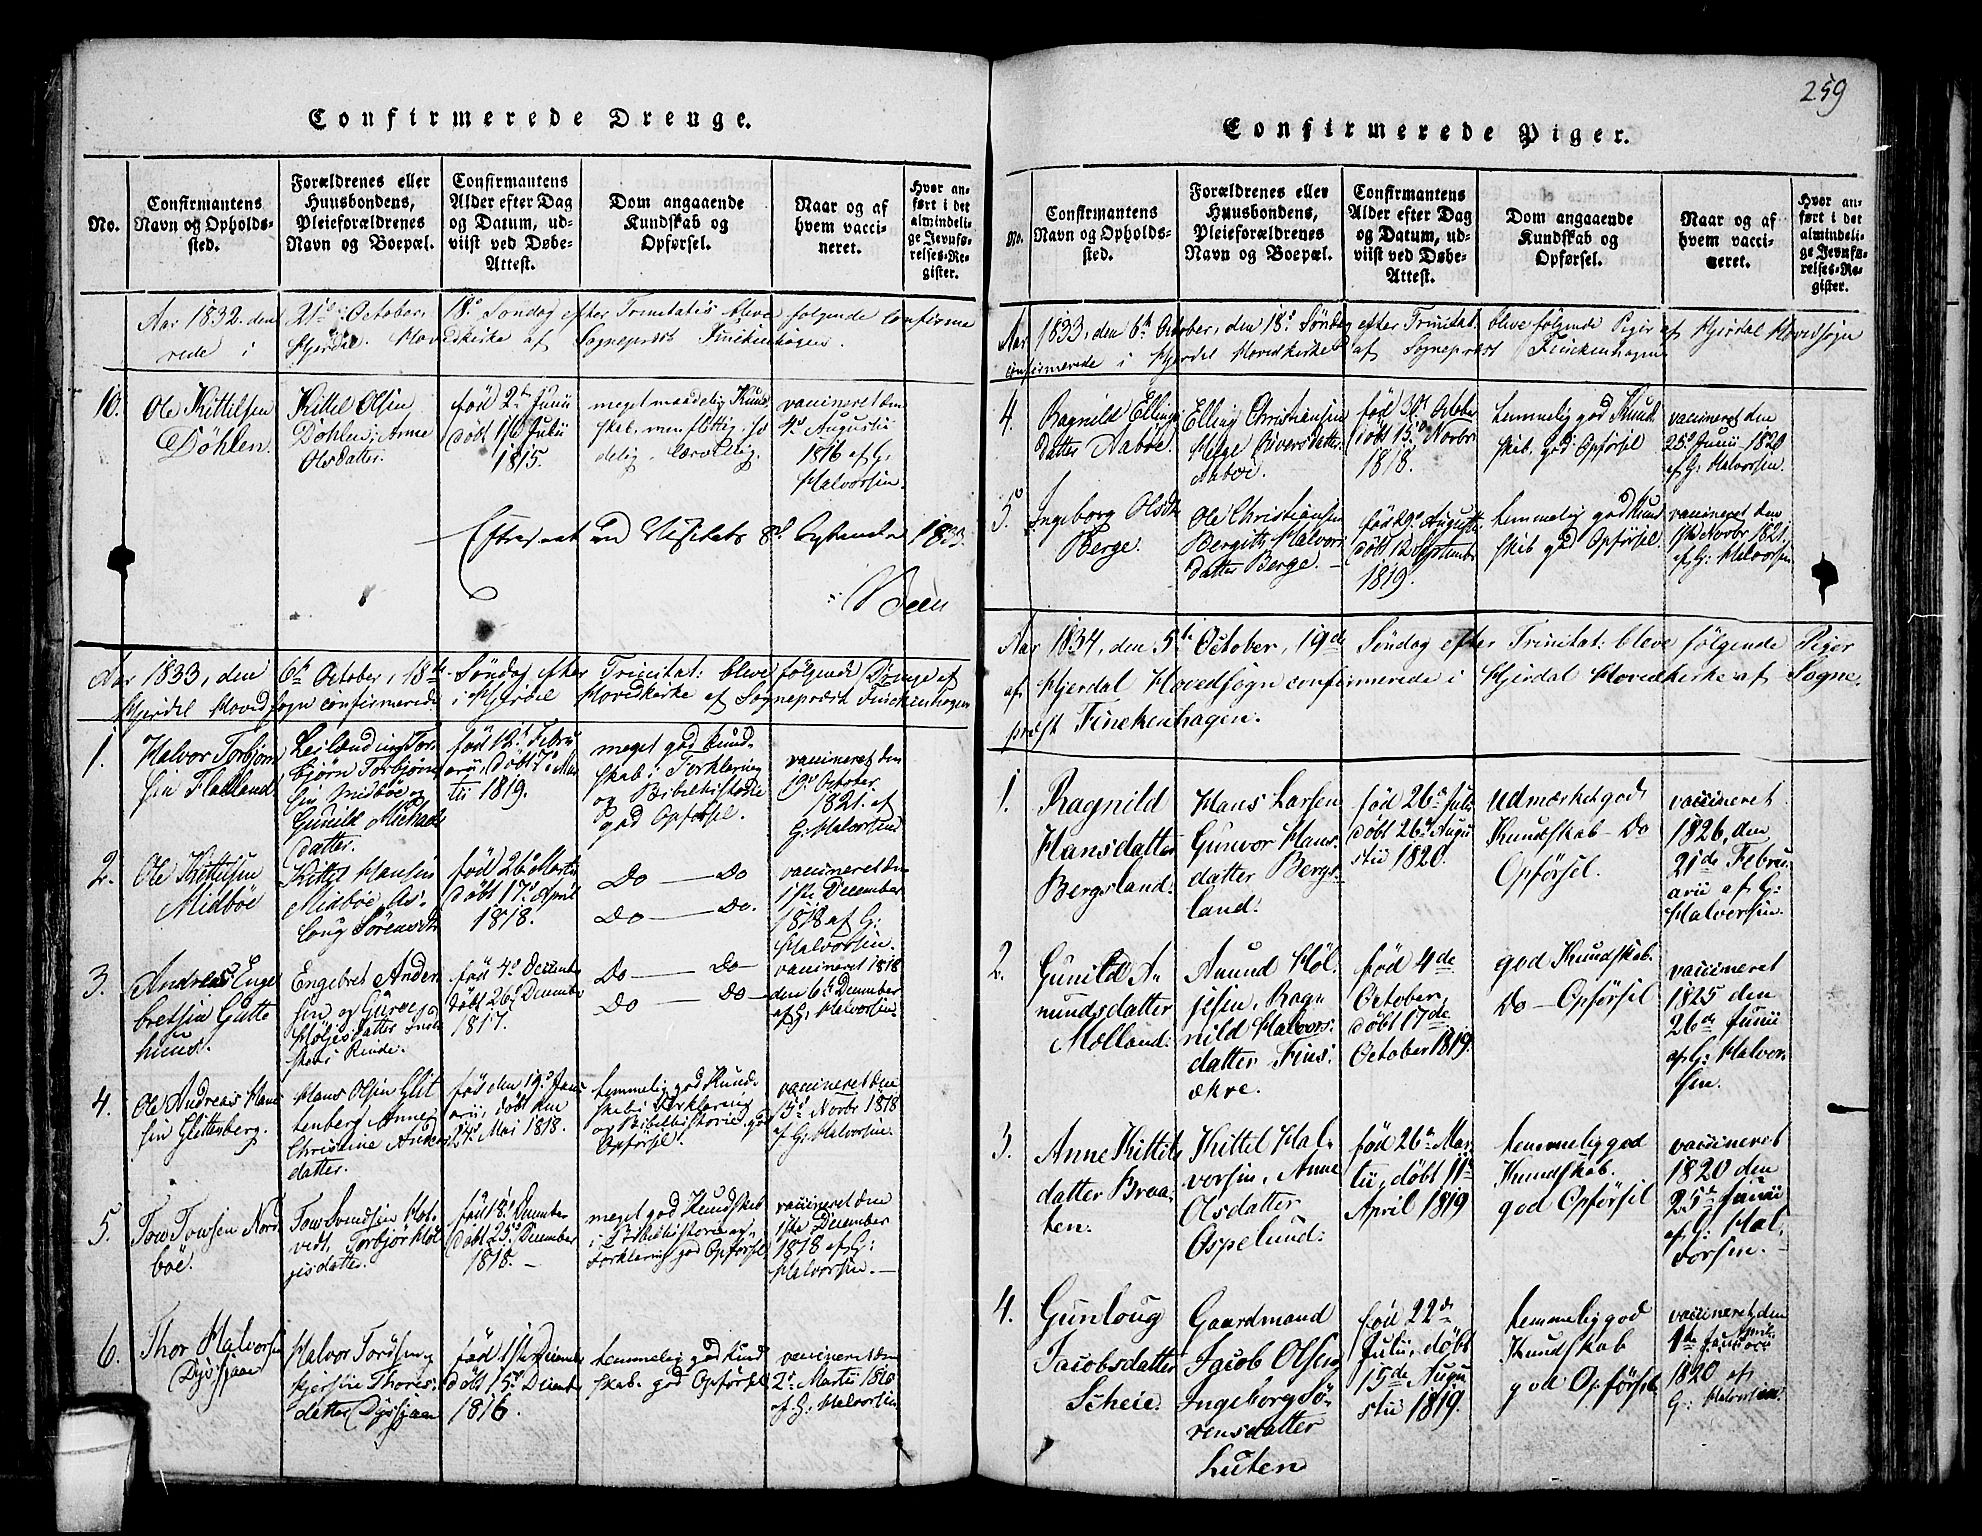 259
Confirmerede Drenge.
No.
Confirmantens
Navn og Opholds-
sted.
Forældrenes eller
Huusbondens,
Pleieforældrenes
Navn og Boepæl.
Confirmantens
Alder efter Dag
og Datum, ud-
viist ved Døbe-
Attest.
Dom angaaende
Kundskab og
Opførsel.
Naar og af
hvem vacci-
neret.
Hvor an-
ført i det
almindeli-
ge Jevnfø-
relses-Re-
gister.
Aar 1832 den 21de October, 18de Søndag efter Trinitatis bleve følgende confirme
rede i Hjerdal Hovedkirke af Sogneprest Finckenhagen.
10.
Ole Kittilsen
Döhlen
Kittel Olsen
Döhlen, Anne
Olsdatter.
fød 2de Junii
döbt 16 Julii
1815.
meget maadelig Kund-
skab, men flittig, sæ
delig, lærvillig.
vaccineret den
4de Augustii
1816 af G:
Halvorsen.
Efterseet ved Visitats 8de 1833.
Aar 1833, den 6te October, 18de Søndag efter Trinitat: bleve følgende Drenge af
Hjerdal Hovedsogn confirmerede i Hjerdal Hovedkirke af Sogneprest Finckenhagen
1.
Halvor Torbjörn
sen Flatland
Leilænding Tor-
björn Torbjörn
sen Midböe og
Gunild Michels
datter.
fød 12te Febru
arii, döbt 7de Mar
tii 1819.
meget god Kund-
skab i Forklaring
og Bibelhistorie
god Opførsel.
vaccineret den
19de October
1821 af
G: Halvorsen
2.
Ole Kittilsen
Midböe
Kittel Hansen
Midböe, As-
loug Sörensdtr
fød 26de Martii
döbt 17de April
1818.
Do — Do
Do — Do.
vaccineret den
1ste December
1818 af G:
Halvorsen.
3.
Andreas Enge
bretsen Gutte
huus.
Engebret Ander-
sen og Guroe
Höljesdatter
Rinde.
fød 4de Decembr
döbt 26de December
1817.
Do — Do
Do — Do
vaccineret 1818
den 6te December
af G: Halvorsen.
4.
Ole Andreas Han
sen Glittenberg.
Hans Olsen Glit
tenberg Anne
Christine Anders
datter.
fød den 19de Janu
arii, döbt den
24de Mai 1818.
temmelig god Kund-
skab i Forklaring
og Bibelhistorie. god
Opførsel.
vaccineret den
15de Novbr 1818
af G: Halvorsen.
5.
Tov Tovsen Nord
böe.
Tov Svendsen Hot-
vedt, Torbjør Höl
jesdatter.
fød 18de December
döbt 25de December
1818.
meget god Kundskab
i Bibelhistorie og
Forklaring god Opførsel
vaccineret den
1ste December
1818 af G:
Halvorsen.
6.
Thor Halvorsen
Dyssjaan
Halvor Torösen
Kjersten Thores-
datter Dyssjaan
fød 1ste Decembr
döbt 15de Decembr
1816.
temmelig god Kund
skab. god Opførsel
vaccineret den
2de Martii 1820
af G: Halvorsen
Confirmerede Piger.
No.
Confirmantens
Navn og Opholds-
sted.
Forældrenes eller
Huusbondens,
Pleieforældrenes
Navn og Boepæl.
Confirmantens
Alder efter Dag
og Datum, ud-
viist ved Døbe-
Attest.
Dom angaaende
Kundskab og
Opførsel.
Naar og af
hvem vacci-
neret.
Hvor an-
ført i det
almindeli-
ge Jevnfø-
relses-Re-
gister.
Aar 1833, den 6te October, den 18de Søndag efter Trinitat. bleve følgende Piger af Hjerdal Hovedsogn
confirmerede i Hjerdal Hovedkirke af Sogneprest Finckenhagen
4.
Ragnild Ellings
datter Naböe.
Elling Christiansen
Helge Eivorsdatter
Naböe
fød 30te October
döbt 15de Novbr
1818.
temmelig god Kund
skab. god Opførsel
vaccineret den
25de Junii 1820
af G: Halvorsen.
5.
Ingeborg Olsdtr
Berge.
Ole Christiansen
Bergith Halvors
datter Berge.
fød 29de Augustii
döbt 12 Septembr
1819.
temmelig god Kund
skab god Opførsel.
vaccineret den
1ste Novbr 1821.
af G: Halvorsen
Aar 1834, den 5te October, 19de Søndag efter Trinitat: bleve følgende Piger
af Hjerdal Hovedsogn confirmerede i Hjerdal Hovedkirke af Sogne-
prest Finckenhagen.
1.
Ragnild
Hansdatter
Bergsland.
Hans Larsen
Gunvor Hans
datter Bergs-
land.
fød 26de Julii
döbt 26de Augu
stii 1820.
Udmærket god
Kundskab — Do
Opførsel.
vaccineret
1826, den
21de Febru
arii af G:
Halvorsen.
2.
Gunild A-
mundsdatter
Mælland.
Anund Höl-
jesen, Rag-
nild Halvors-
datter Fins-
ækre.
fød 4de
October,
döbt 17de
October 1819.
god Kundskab.
Do — Opførsel
vaccineret
1825 den
26de Junii
af G: Halvor
sen.
3.
Anne Kittils
datter Braa-
ten.
Kittel Hal-
vorsen, Anne
Olsdatter
Ospelund.
fød 26de Mar
tii, döbt 11te
April 1819
temmelig god
Kundskab.
god Opførsel
vaccineret
1820 den
25de Junii
af G: Hal-
vorsen.
4.
Gunloug
Jacobsdatter
Scheie.
Gaardmand
Jacob Olsen
Ingeborg Sö-
rensdatter
Luten
fød 22de
Julii, döbt
15de Augu
stii 1819.
temmelig god
Kundskab
god Opførsel
vaccineret den
1820 af
G: Halvorsen.